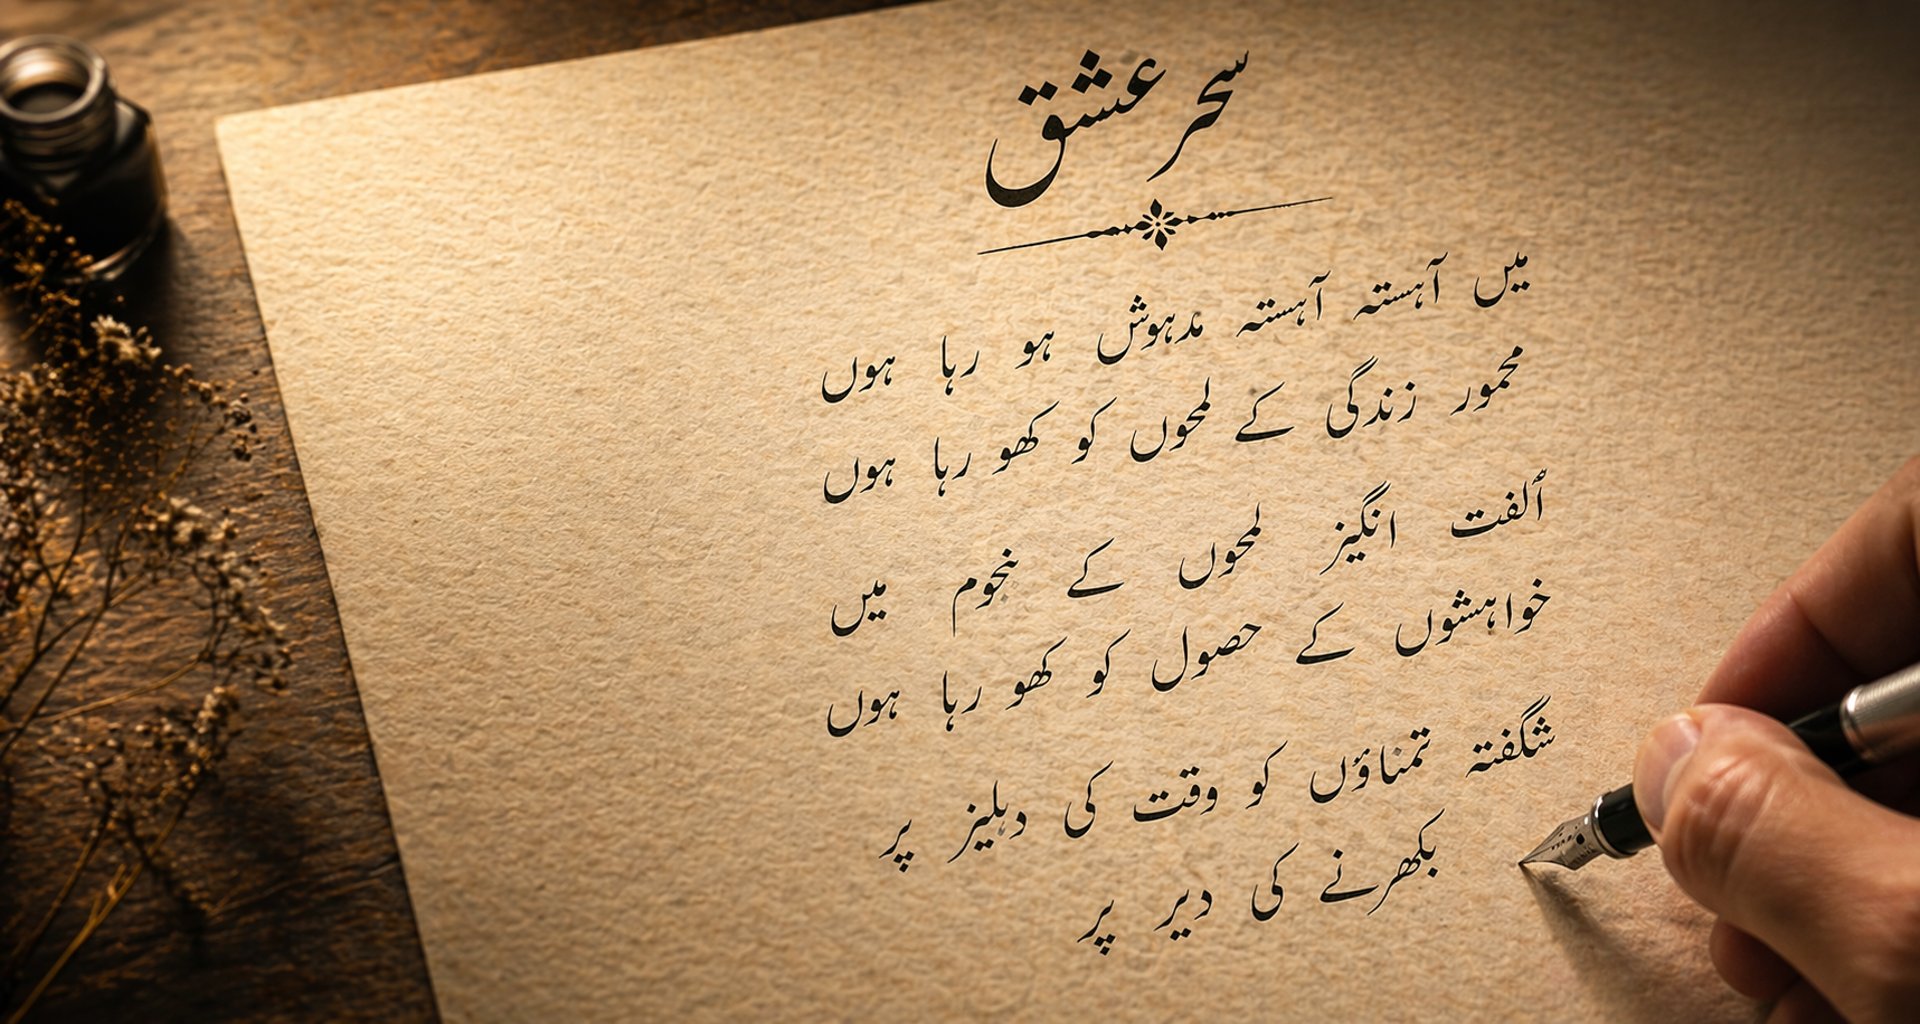 سحر عشق
میں آہستہ آہستہ مدہوش ہو رہا ہوں
مخمور زندگی کے لمحوں کو کھو رہا ہوں
اُلفت انگیز لمحوں کے نجوم میں
خواہشوں کے حصول کو کھو رہا ہوں
شگفتہ تمناؤں کو وقت کی دہلیز پر
بکھرنے کی دیر پر